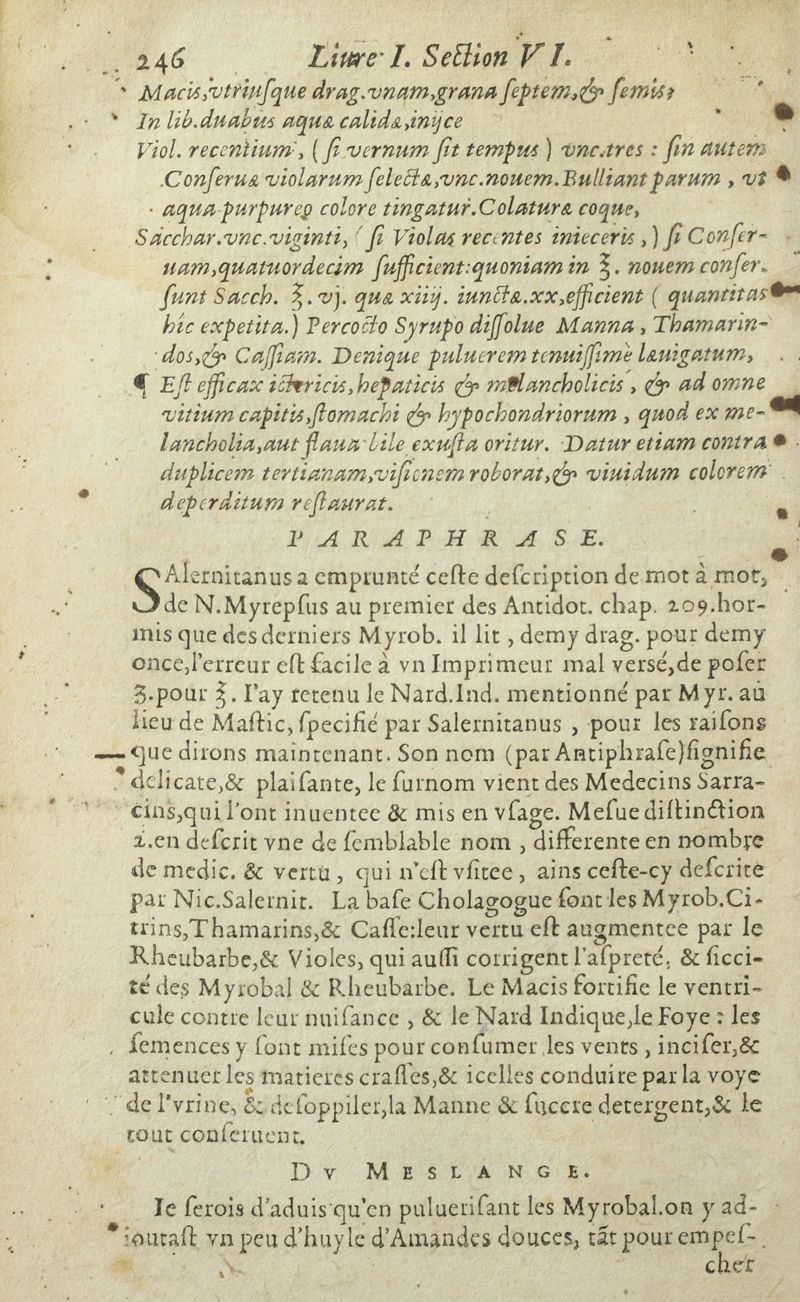 246 Liure I. Section VI.
Macis,vtriusque drag.vnam,grana septem,& semis:
In lib.duabus aquæ calidæ,inijce
Viol. recentium, ( si vernum sit tempus ) vnc.tres : sin autem
Conseruæ violarum selectæ,vnc.nouem.Bulliant parum , vt
aqua purpureo colore tingatur.Colaturæ coque,
Sacchar.vnc.viginti, ( si Violas recentes inieceris , ) si Conser-
uam,quatuordecim sufficient:quoniam in ℥. nouem conser.
sunt Sacch. ℥. vj. quæ xiiij. iunctæ.xx,efficient ( quantitas
hic expetita.) Percocto Syrupo dissolue Manna , Thamarin-
dos,& Cassiam. Denique puluerem tenuissimè læuigatum,
¶ Est efficax ictericis,hepaticis & melancholicis , & ad omne
vitium capitis,stomachi & hypochondriorum , quod ex me-
lancholia,aut flaua bile exusta oritur. Datur etiam contra
duplicem tertianam,visionem roborat,& viuidum colorem
deperditum restaurat.
PARAPHRASE.
SAlernitanus a emprunté ceste description de mot à mot,
de N.Myrepsus au premier des Antidot. chap. 209.hor-
mis que des derniers Myrob. il lit , demy drag. pour demy
once,l'erreur est facile à vn Imprimeur mal versé,de poser
ʒ.pour ℥. I'ay retenu le Nard.Ind. mentionné par Myr. au
lieu de Mastic, specifié par Salernitanus , pour les raisons
que dirons maintenant. Son nom (par Antiphrase)signifie
delicate,& plaisante, le surnom vient des Medecins Sarra-
cins,qui l'ont inuentee & mis en vsage. Mesue distinction
2.en descrit vne de semblable nom , differente en nombre
de medic. & vertu , qui n'est vsitee , ains ceste-cy descrite
par Nic.Salernit. La base Cholagogue sont les Myrob.Ci-
trins,Thamarins,& Casse:leur vertu est augmentee par le
Rheubarbe,& Violes, qui aussi corrigent l'aspreté, & sicci-
té des Myrobal & Rheubarbe. Le Macis fortifie le ventri-
cule contre leur nuisance , & le Nard Indique,le Foye : les
semences y sont mises pour consumer les vents , inciser,&
attenuer les matieres crasses,& icelles conduire par la voye
de l'vrine, & desoppiler,la Manne & succre detergent,& le
tout conseruent.
DV MESLANGE.
Ie serois d'aduis qu'en puluerisant les Myrobal.on y ad-
ioutast vn peu d'huyle d'Amandes douces, tãt pour empes-
cher